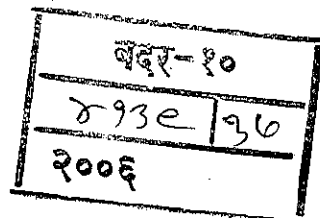 बदर-१०
४१३९ | ३७
२००६